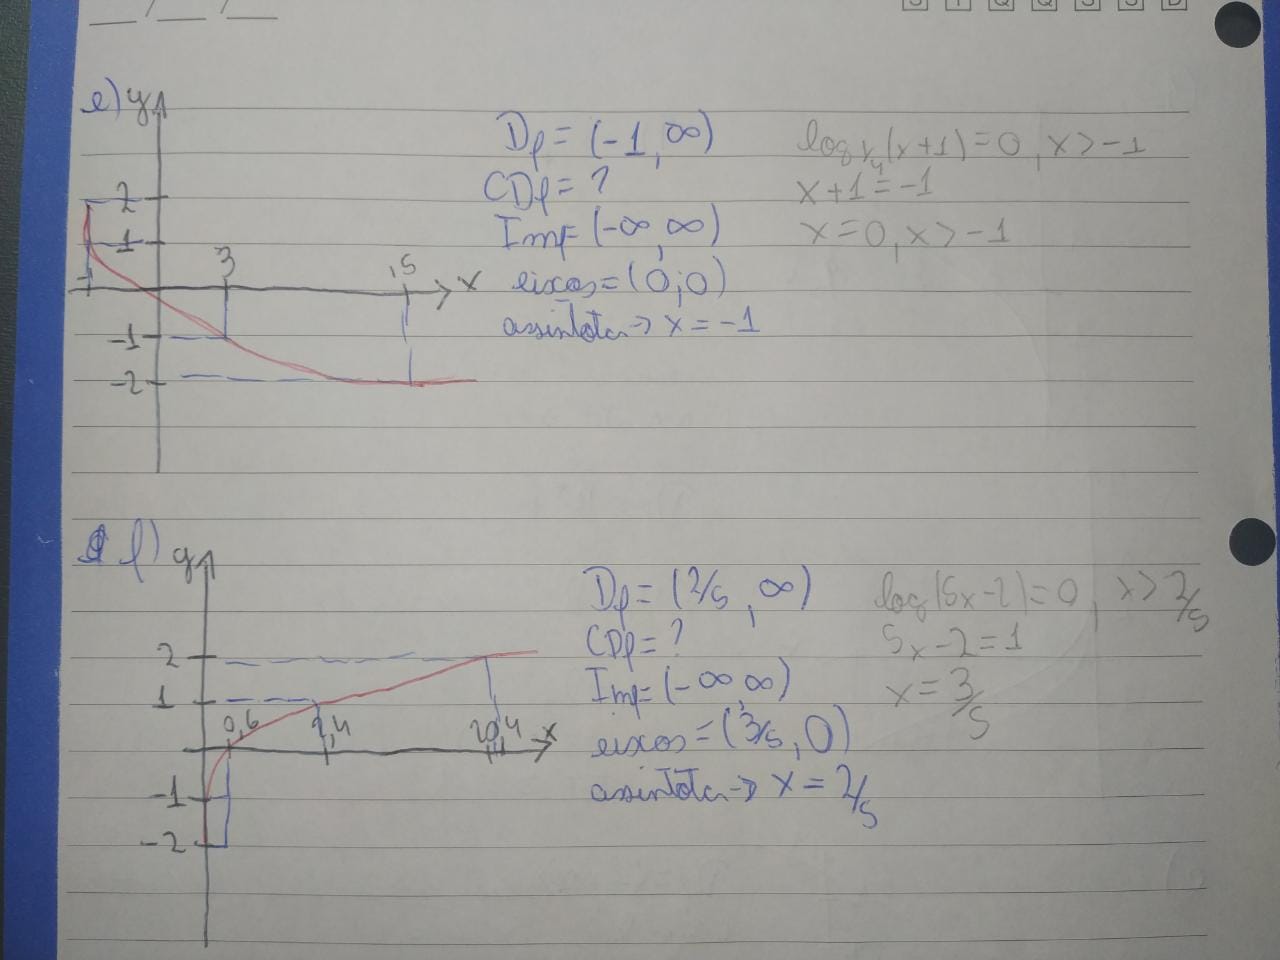 S T Q Q S S D
e) y
2
1
3
15
x
-1
-1
-2
Df = (-1, ∞)
CDf = ?
Imf = (-∞, ∞)
eixos = (0;0)
assíntota -> x = -1
log 1/4 (x+1) = 0, x > -1
x+1 = -1
x = 0, x > -1
f) y
2
1
0,6
2,4
20,4
x
-1
-2
Df = (2/5, ∞)
CDf = ?
Imf = (-∞, ∞)
eixos = (3/5, 0)
assíntota -> x = 2/5
log(5x-2) = 0, x > 2/5
5x-2 = 1
x = 3/5